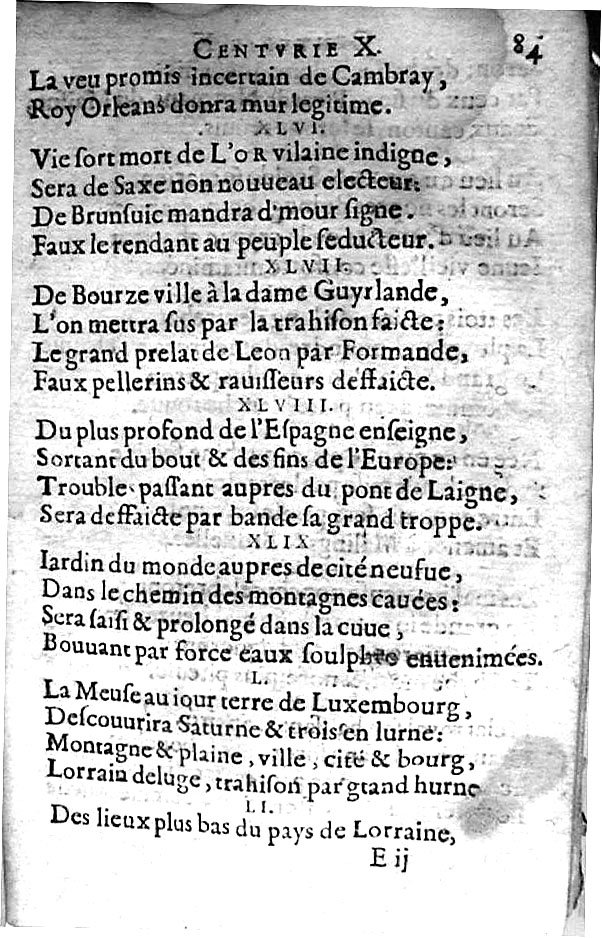 CENTVRIE X. 84
La veu promis incertain de Cambray,
Roy Orleans donra mur legitime.
XLVI.
Vie ſort mort de L'oR vilaine indigne,
Sera de Saxe non nouueau electeur:
De Brunſuic mandra d'mour ſigne.
Faux le rendant au peuple ſeducteur.
XLVII.
De Bourze ville à la dame Guyrlande,
L'on mettra ſus par la trahiſon faicte:
Le grand prelat de Leon par Formande,
Faux pellerins & rauiſſeurs deffaicte.
XLVIII.
Du plus profond de l'Eſpagne enſeigne,
Sortant du bout & des fins de l'Europe:
Trouble paſſant aupres du pont de Laigne,
Sera deffaicte par bande ſa grand troppe.
XLIX
Iardin du monde aupres de cité neufue,
Dans le chemin des montagnes cauées:
Sera ſaiſi & prolongé dans la cuue,
Bouuant par force eaux ſoulphre enuenimées.
L.
La Meuſe au iour terre de Luxembourg,
Deſcouurira Saturne & trois en lurne:
Montagne & plaine, ville, cité & bourg,
Lorrain deluge, trahiſon par gtand hurne
LI.
Des lieux plus bas du pays de Lorraine,
E ij